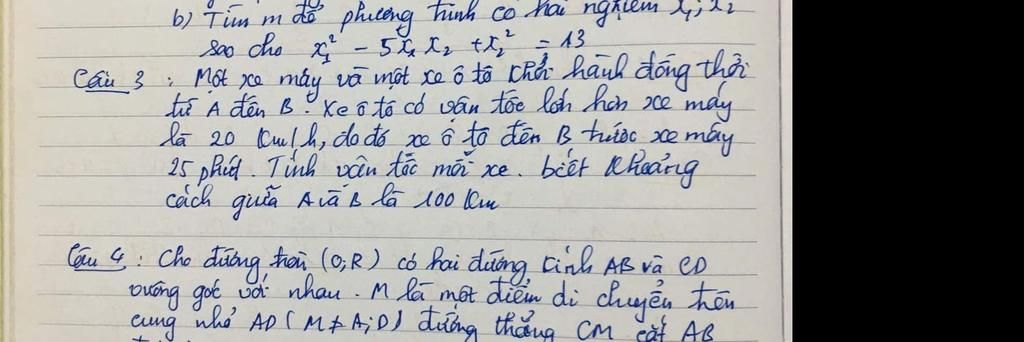 b) Tìm m để phương trình có hai nghiệm x₁; x₂
sao cho x₁² - 5x₁x₂ + x₂² = 13
Câu 3 : Một xe máy và một xe ô tô khởi hành đồng thời
từ A đến B. Xe ô tô có vận tốc lớn hơn xe máy
là 20 Km/h, do đó xe ô tô đến B trước xe máy
25 phút. Tính vận tốc mỗi xe. biết khoảng
cách giữa A và B là 100 Km
Câu 4 : Cho đường tròn (O;R) có hai đường kính AB và CD
vuông góc với nhau. M là một điểm di chuyển trên
cung nhỏ AD (M ≠ A;D) đường thẳng CM cắt AB